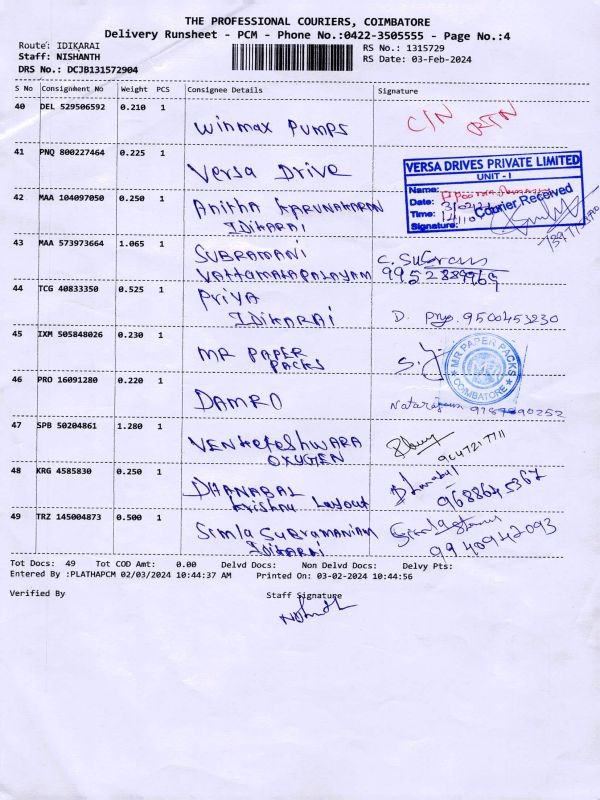 THE PROFESSIONAL COURIERS, COIMBATORE
Delivery Runsheet - PCM - Phone No.:0422-3505555 - Page No.:4
Route: IDIKARAI
RS No.: 1315729
Staff: NISHANTH
RS Date: 03-Feb-2024
DRS No.: DCJB131572904
S No Consignment No Weight PCS Consignee Details Signature
40 DEL 529506592 0.210 1
Winmax Pumps C/N RTN
41 PNQ 800227464 0.225 1
Versa Drive
VERSA DRIVES PRIVATE LIMITED
UNIT - I
Name:
Date:
Time:
Signature:
Courier Received
42 MAA 104097050 0.250 1
Anitha KARUNAKARAN
IDIKARAI
43 MAA 573973664 1.065 1
SUBRAMANI
VATTAMALAPALAYAM
9952889969
44 TCG 40833350 0.525 1
PRIYA
IDIKARAI D. Priya. 9500453230
45 IXM 505848026 0.230 1
MR PAPER
PACKS
MR PAPER PACKS
COIMBATORE
46 PRO 16091280 0.220 1
DAMRO
47 SPB 50204861 1.280 1
VENKETESHWARA
OXYGEN
48 KRG 4585830 0.250 1
DHANABAL
Krishna Layout
9688645367
49 TRZ 145004873 0.500 1
Simla SUBRAMANIAM
Idikarai
9940942093
Tot Docs: 49 Tot COD Amt: 0.00 Delvd Docs: Non Delvd Docs: Delvy Pts:
Entered By :PLATHAPCM 02/03/2024 10:44:37 AM Printed On: 03-02-2024 10:44:56
Verified By Staff Signature